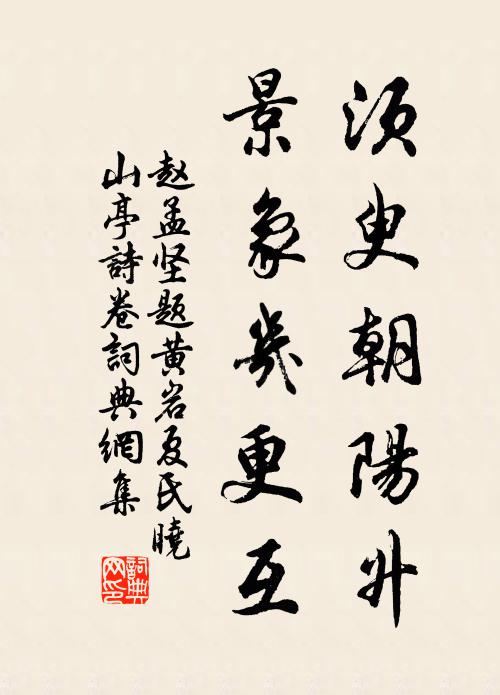 须臾朝陽升
景象幾更互
赵孟坚题黄岩夏氏曉
山亭詩卷詞典網集
詞典
网印